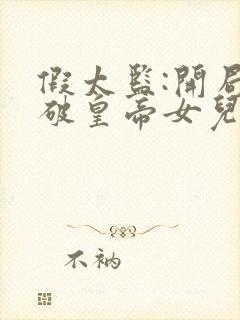 假太監:開局
破皇帝女兒
不衲